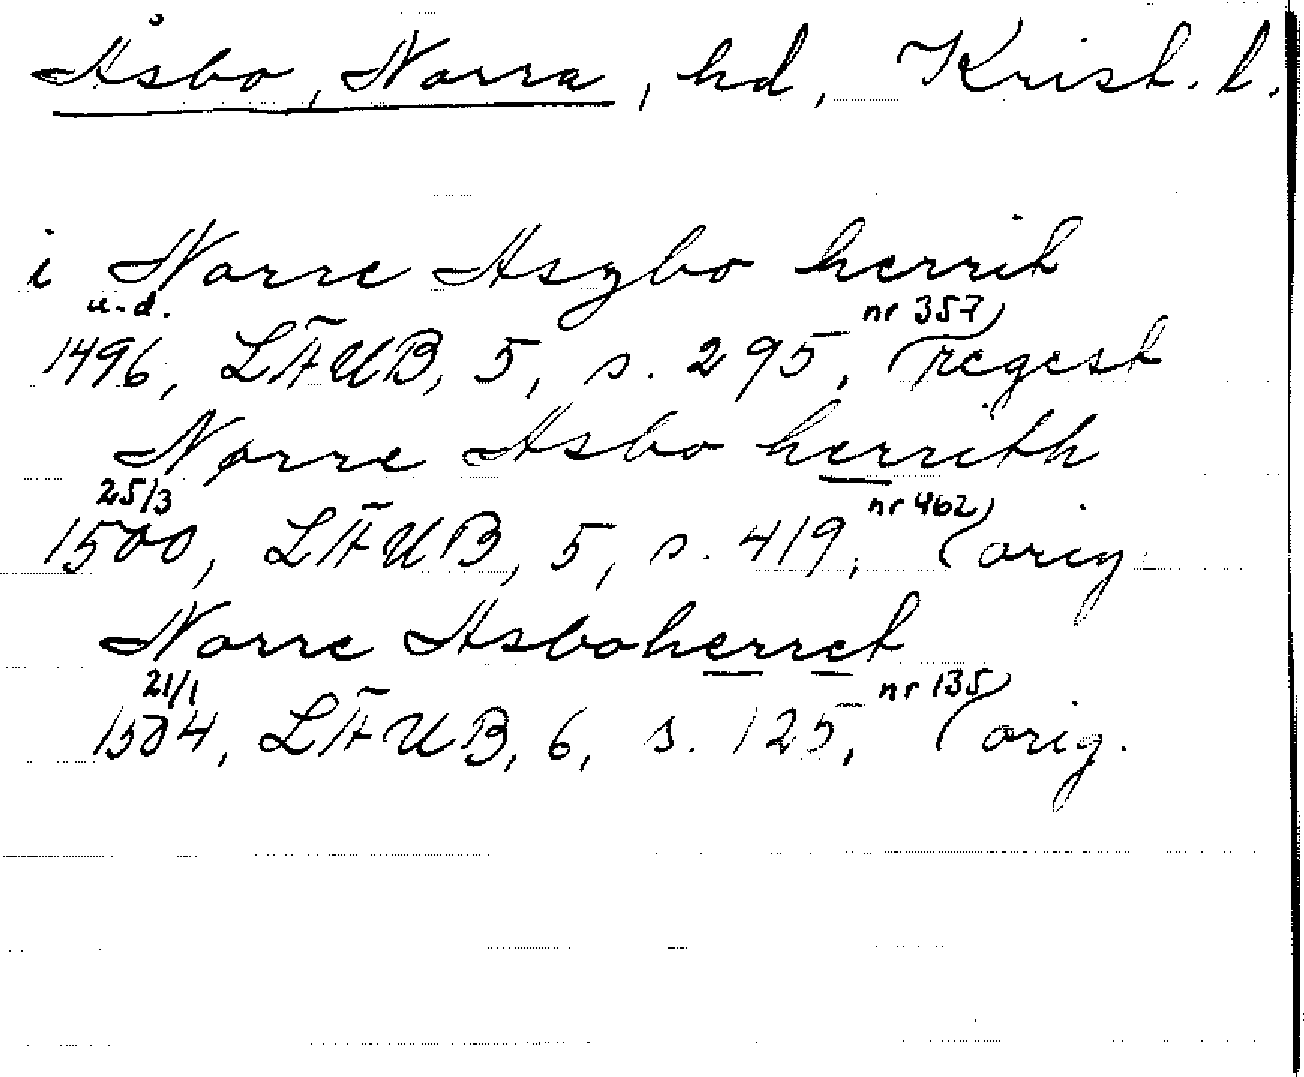 Åsbo, Norra, hd, Krist. l.
i Norre Aszbo herrit
u.d. nr 357)
1496, LÄUB, 5, s. 295, (regest
Nørre Asbo herrith
25/3 nr 462)
1500, LÄUB, 5, s. 419, (orig.
Norre Asboherret
21/1 nr 135)
1504, LÄUB, 6, s. 125, (orig.